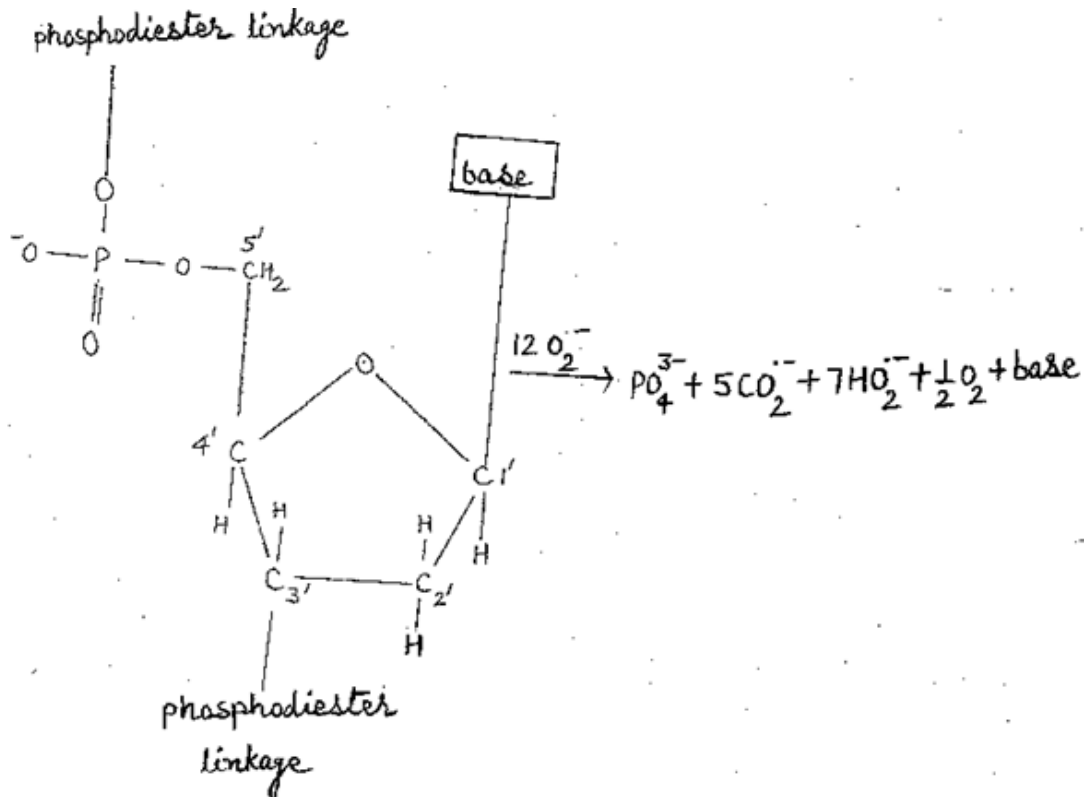 phosphodiester linkage
O
⁻O — P — O — CH₂
5'
O
base
O
12 O₂˙⁻
→ PO₄³⁻ + 5CO₂˙⁻ + 7HO₂˙⁻ + ½O₂ + base
4' C
C1'
H
H
H
H
C3'
C2'
H
phosphodiester
linkage